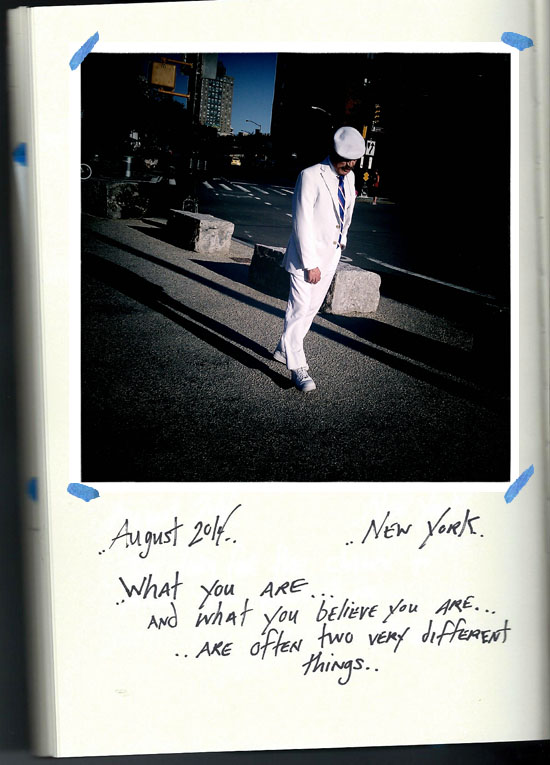 ..August 2014..
..New York.
..What you ARE...
AND what you believe you ARE...
..ARE often two very different
things..